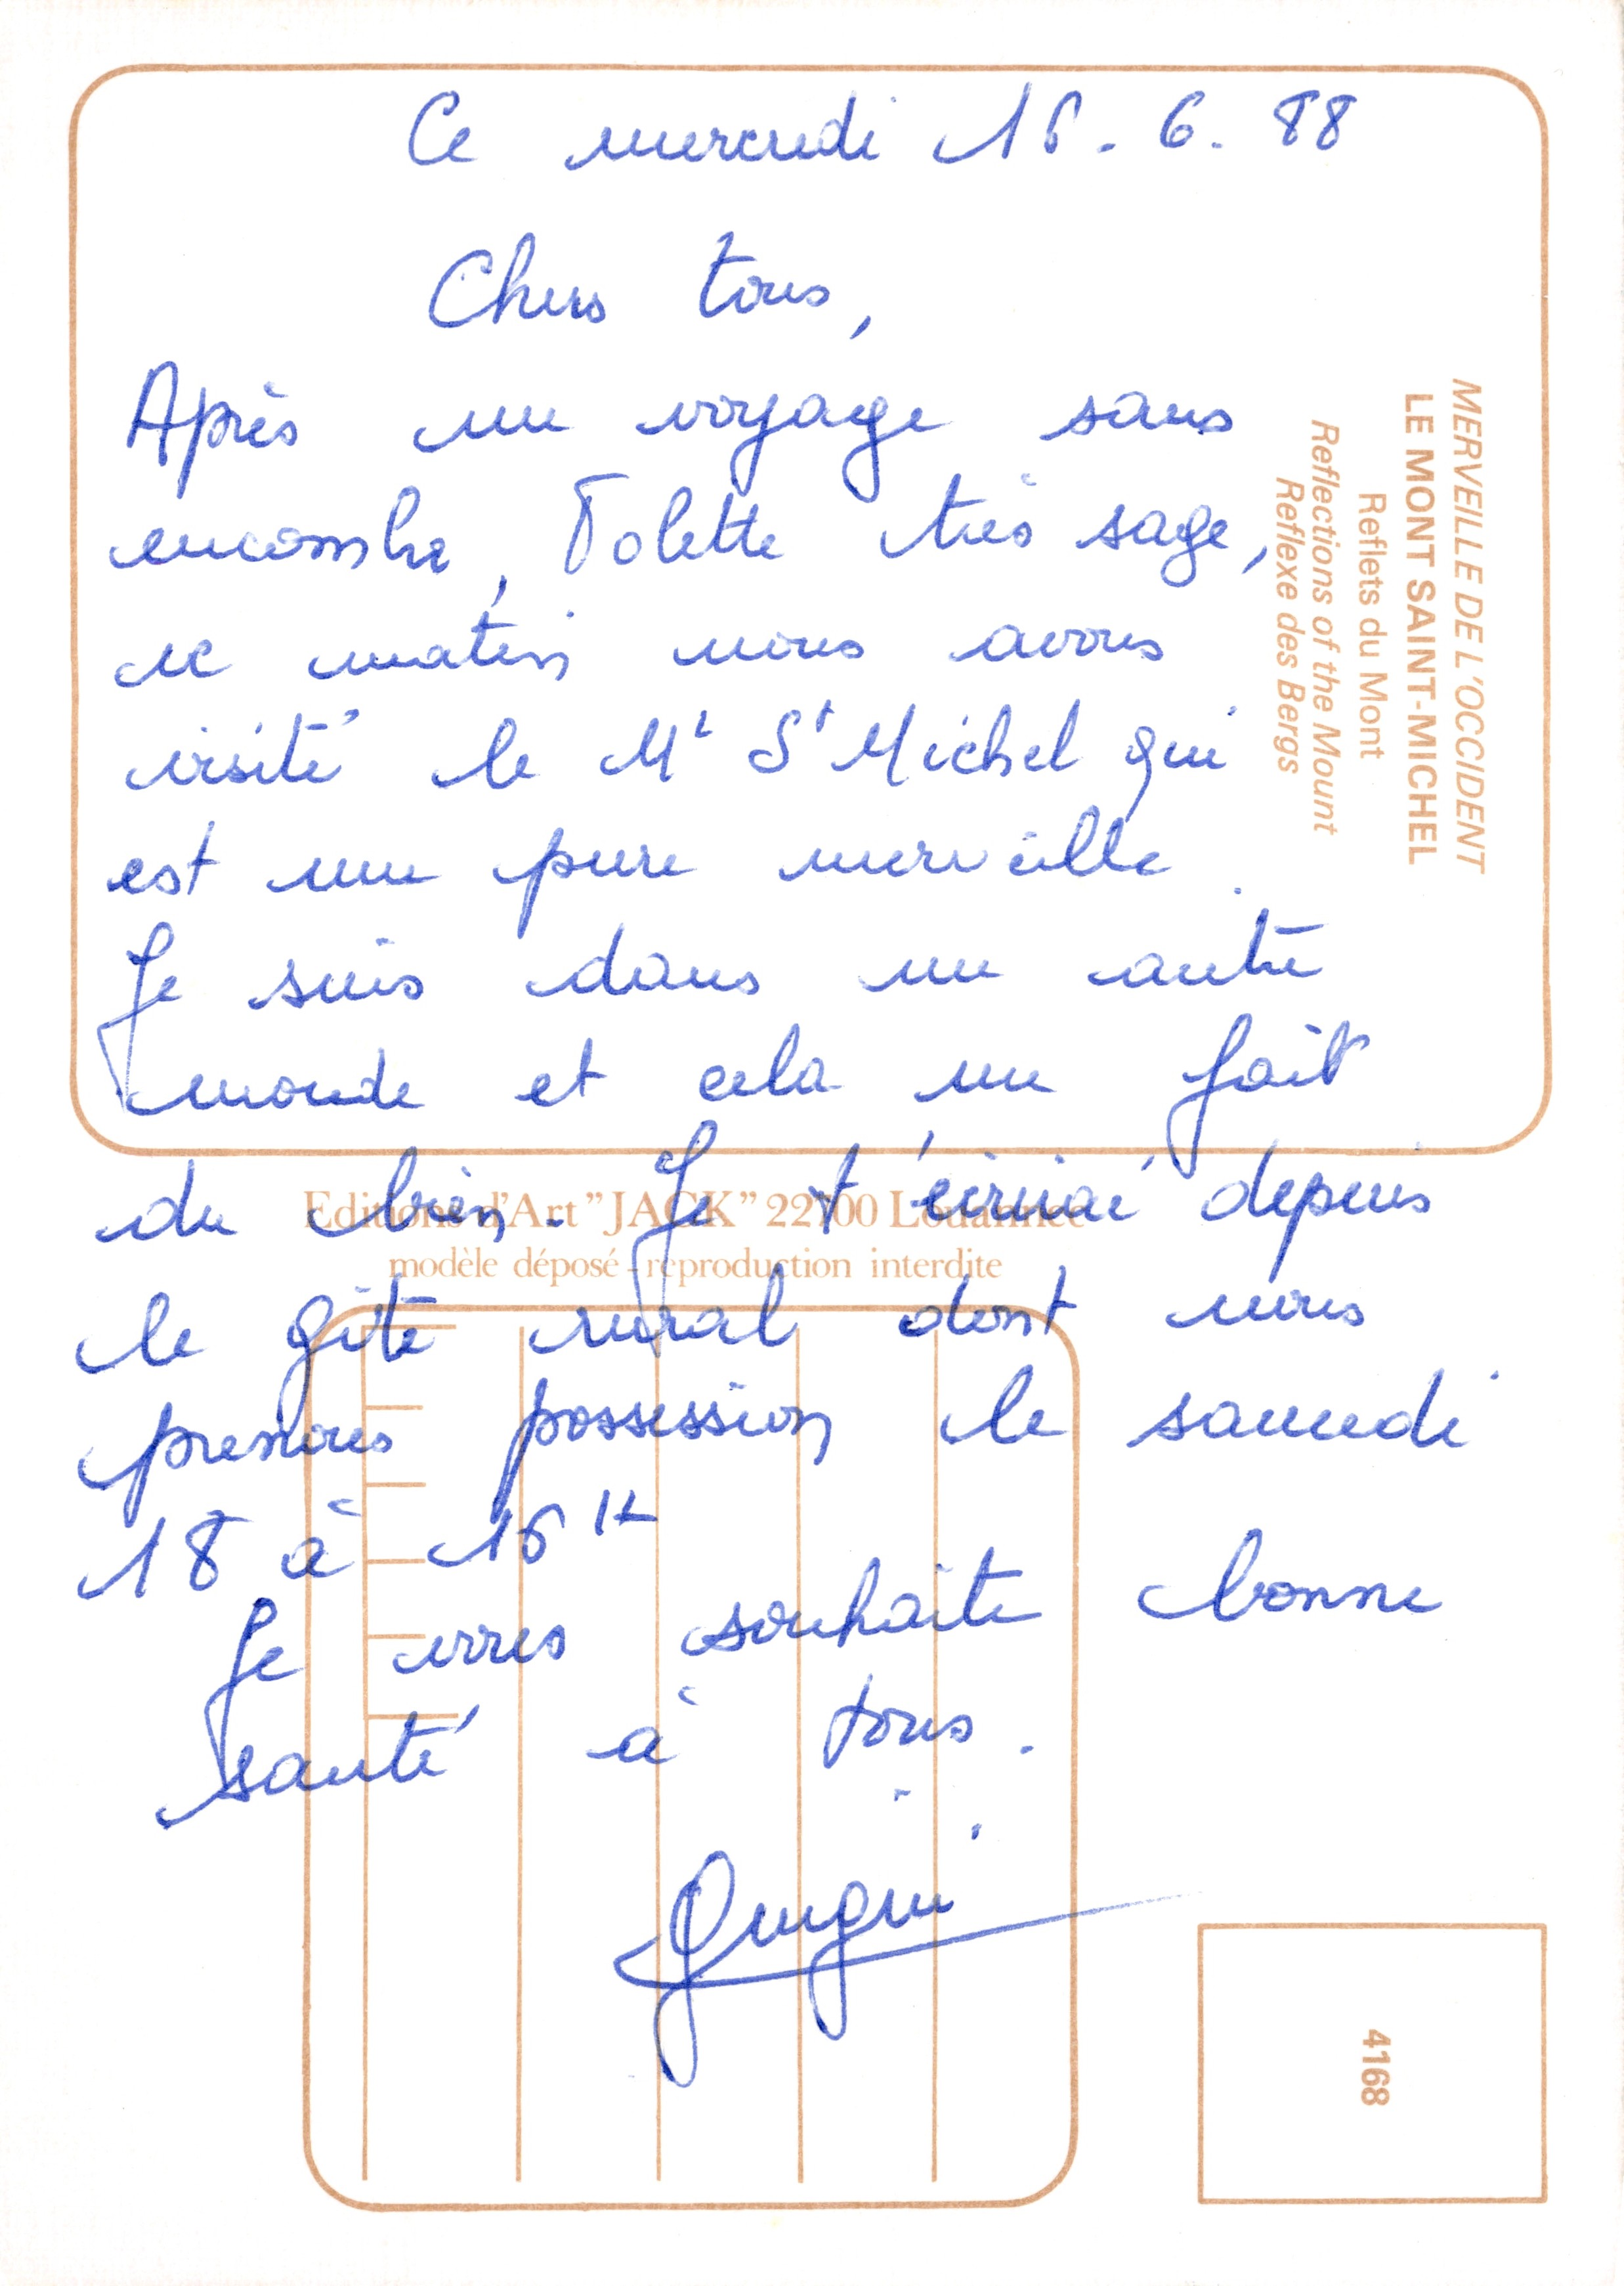 Ce mercredi 15.6.88
Chers tous,
Après un voyage sans
encombre, Folette très sage,
ce matin nous avons
visité le Mt St Michel qui
est une pure merveille.
Je suis dans un autre
monde et cela me fait
du bien. Je t'écrirai depuis
le gîte rural dont nous
prenons possession le samedi
18 à 16 H
Je vous souhaite bonne
santé à tous.
Guigui
MERVEILLE DE L'OCCIDENT
LE MONT SAINT-MICHEL
Reflets du Mont
Reflections of the Mount
Reflexe des Bergs
Editions d'Art "JACK" 22700 Louannec
modèle déposé - reproduction interdite
4168